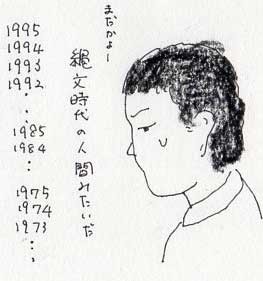 まだかよー
縄文時代の人間みたいだ
1995
1994
1993
1992
・
・
1985
1984
・
・
1975
1974
1973
・
・